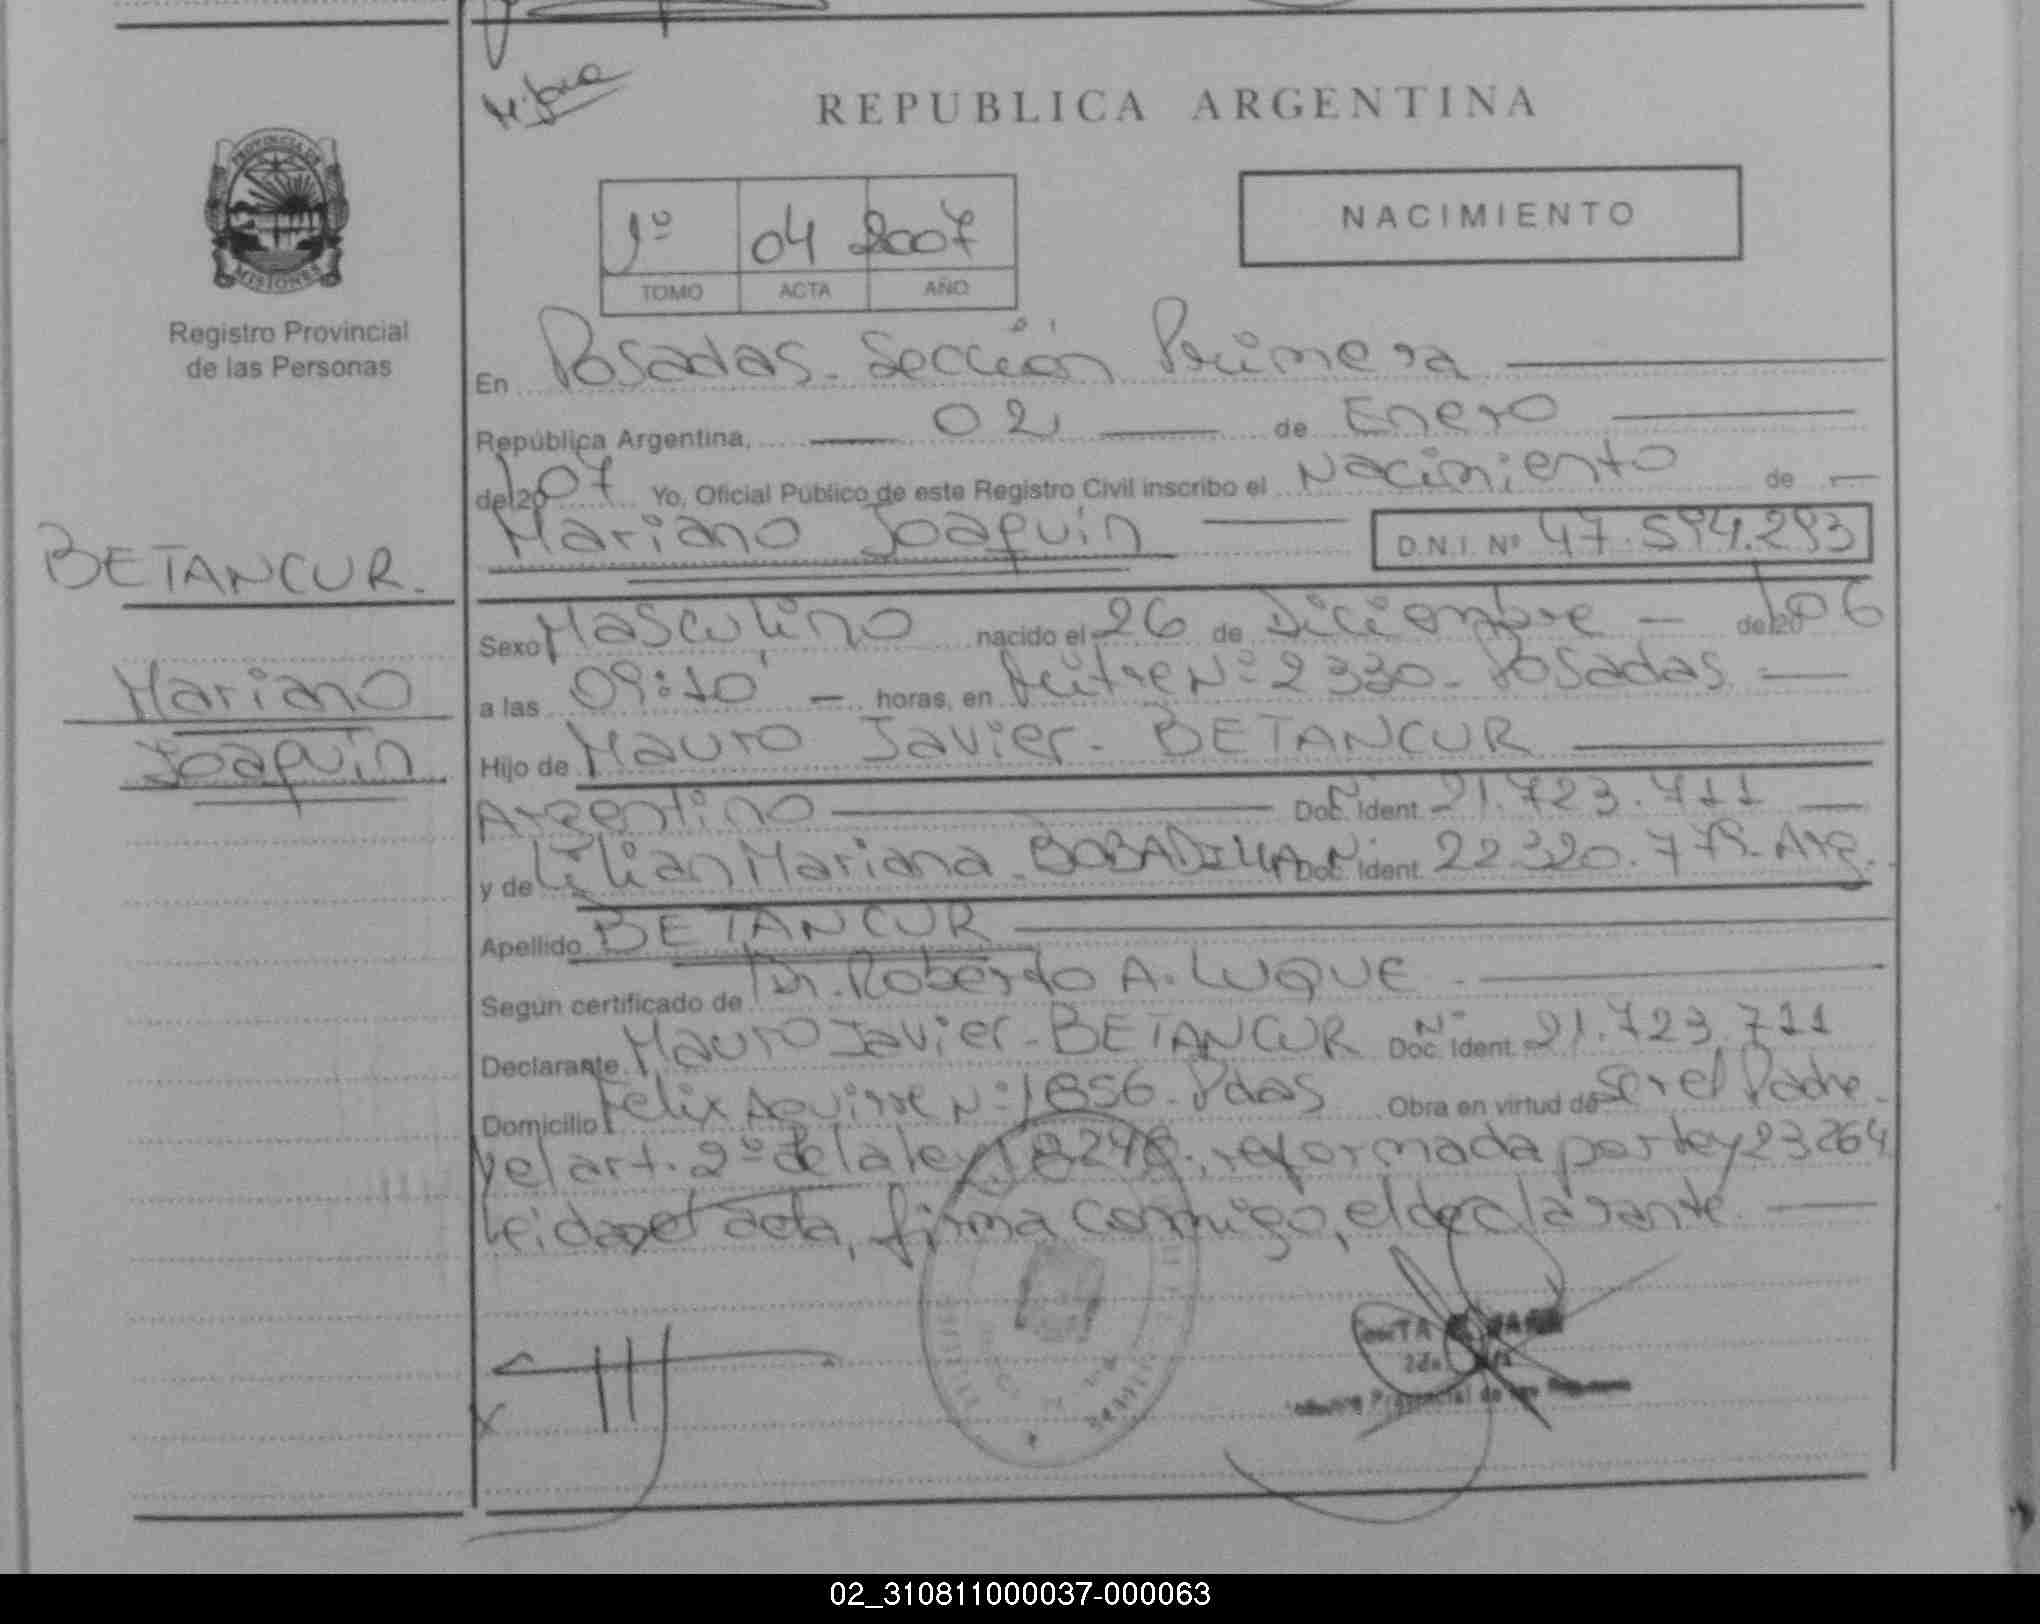 REPUBLICA ARGENTINA
PROVINCIA DE
MISIONES
Registro Provincial
de las Personas
1º 04 2007
TOMO ACTA AÑO
NACIMIENTO
En Posadas. Sección Primera
República Argentina, 02 de Enero
del 2007 Yo, Oficial Público de este Registro Civil inscribo el Nacimiento de
Mariano Joaquín D.N.I. Nº 47.594.293
BETANCUR.
Mariano
Joaquín
Sexo Masculino nacido el 26 de Diciembre del 2006
a las 09:10' horas, en Mitre Nº 2330. Posadas
Hijo de Mauro Javier. BETANCUR
Argentino Doc. Ident. 21.723.711
y de Lilian Mariana BOBADILLA Doc. Ident. 22320.779. Arg.
Apellido BETANCUR
Según certificado de Dr. Roberto A. LUQUE
Declarante Mauro Javier. BETANCUR Doc. Ident. 21.723.711
Domicilio Felix Aguirre Nº 1856. Pdas Obra en virtud de Ser el Padre.
y el art. 2º de la ley 18248, reformada por ley 23264
Leida el acta, firma conmigo, el declarante.
X
02_310811000037-000063